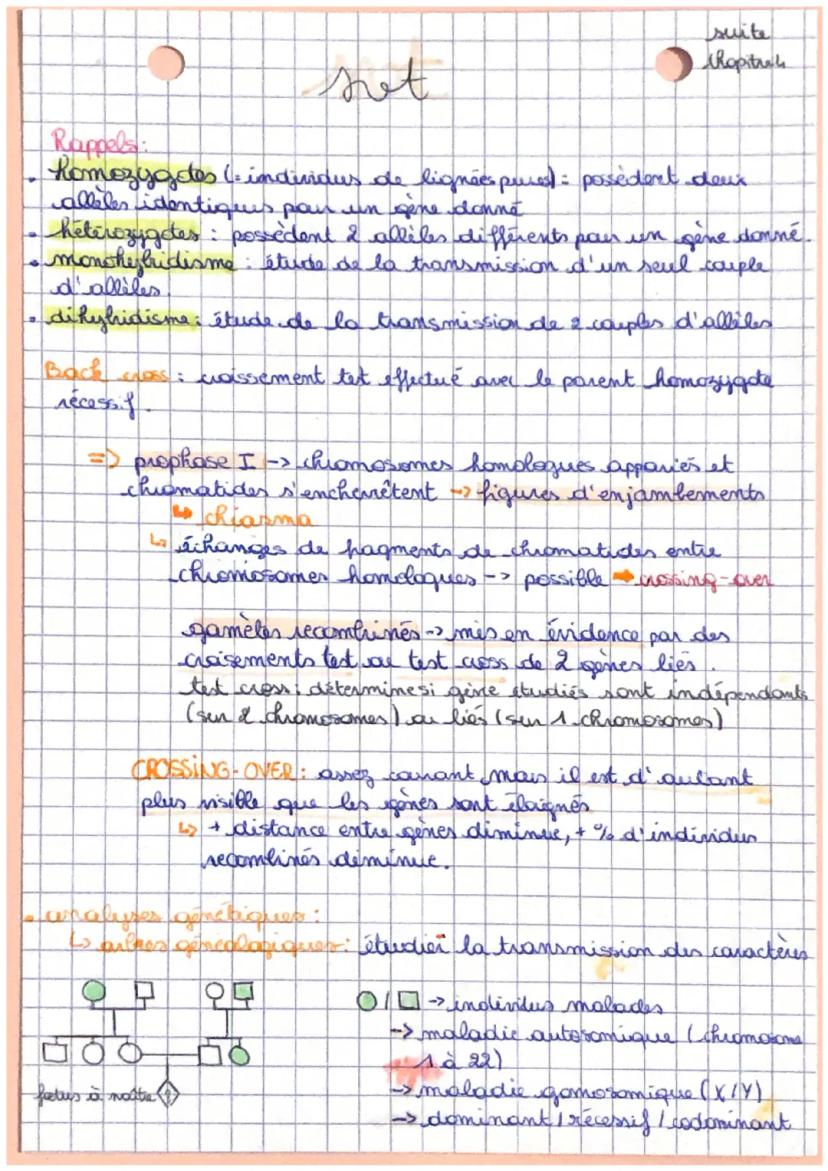 suite
chapitre 4
svt
Rappels:
• homozygotes (= individus de lignées pures) = possèdent deux
allèles identiques pour un gène donné
• hétérozygotes : possèdent 2 allèles différents pour un gène donné.
• monohybridisme : étude de la transmission d'un seul couple
d'allèles.
• dihybridisme : étude de la transmission de 2 couples d'allèles
Back cross : croissement test effectué avec le parent homozygote
récessif.
=> prophase I -> chromosomes homologues appariés et
chromatides s'enchevêtrent -> figures d'enjambements
↳ chiasma
↳ échanges de fragments de chromatides entre
chromosomes homologues -> possible ➡ crossing-over
gamètes recombinés -> mis en évidence par des
croisements test ou test cross de 2 gènes liés.
test cross : détermine si gène étudiés sont indépendants
(sur 2 chromosomes) ou liés (sur 1 chromosomes)
CROSSING-OVER : assez courant mais il est d'autant
plus visible que les gènes sont éloignés
↳ + distance entre gènes diminue, + % d'individus
recombinés diminue.
• analyses génétiques :
↳ arbres généalogiques : étudier la transmission des caractères
O/□ -> individus malades
-> maladie autosomique (chromosome
1 à 22)
-> maladie gonosomique (X/Y)
-> dominant / récessif / codominant
fœtus à naître ?